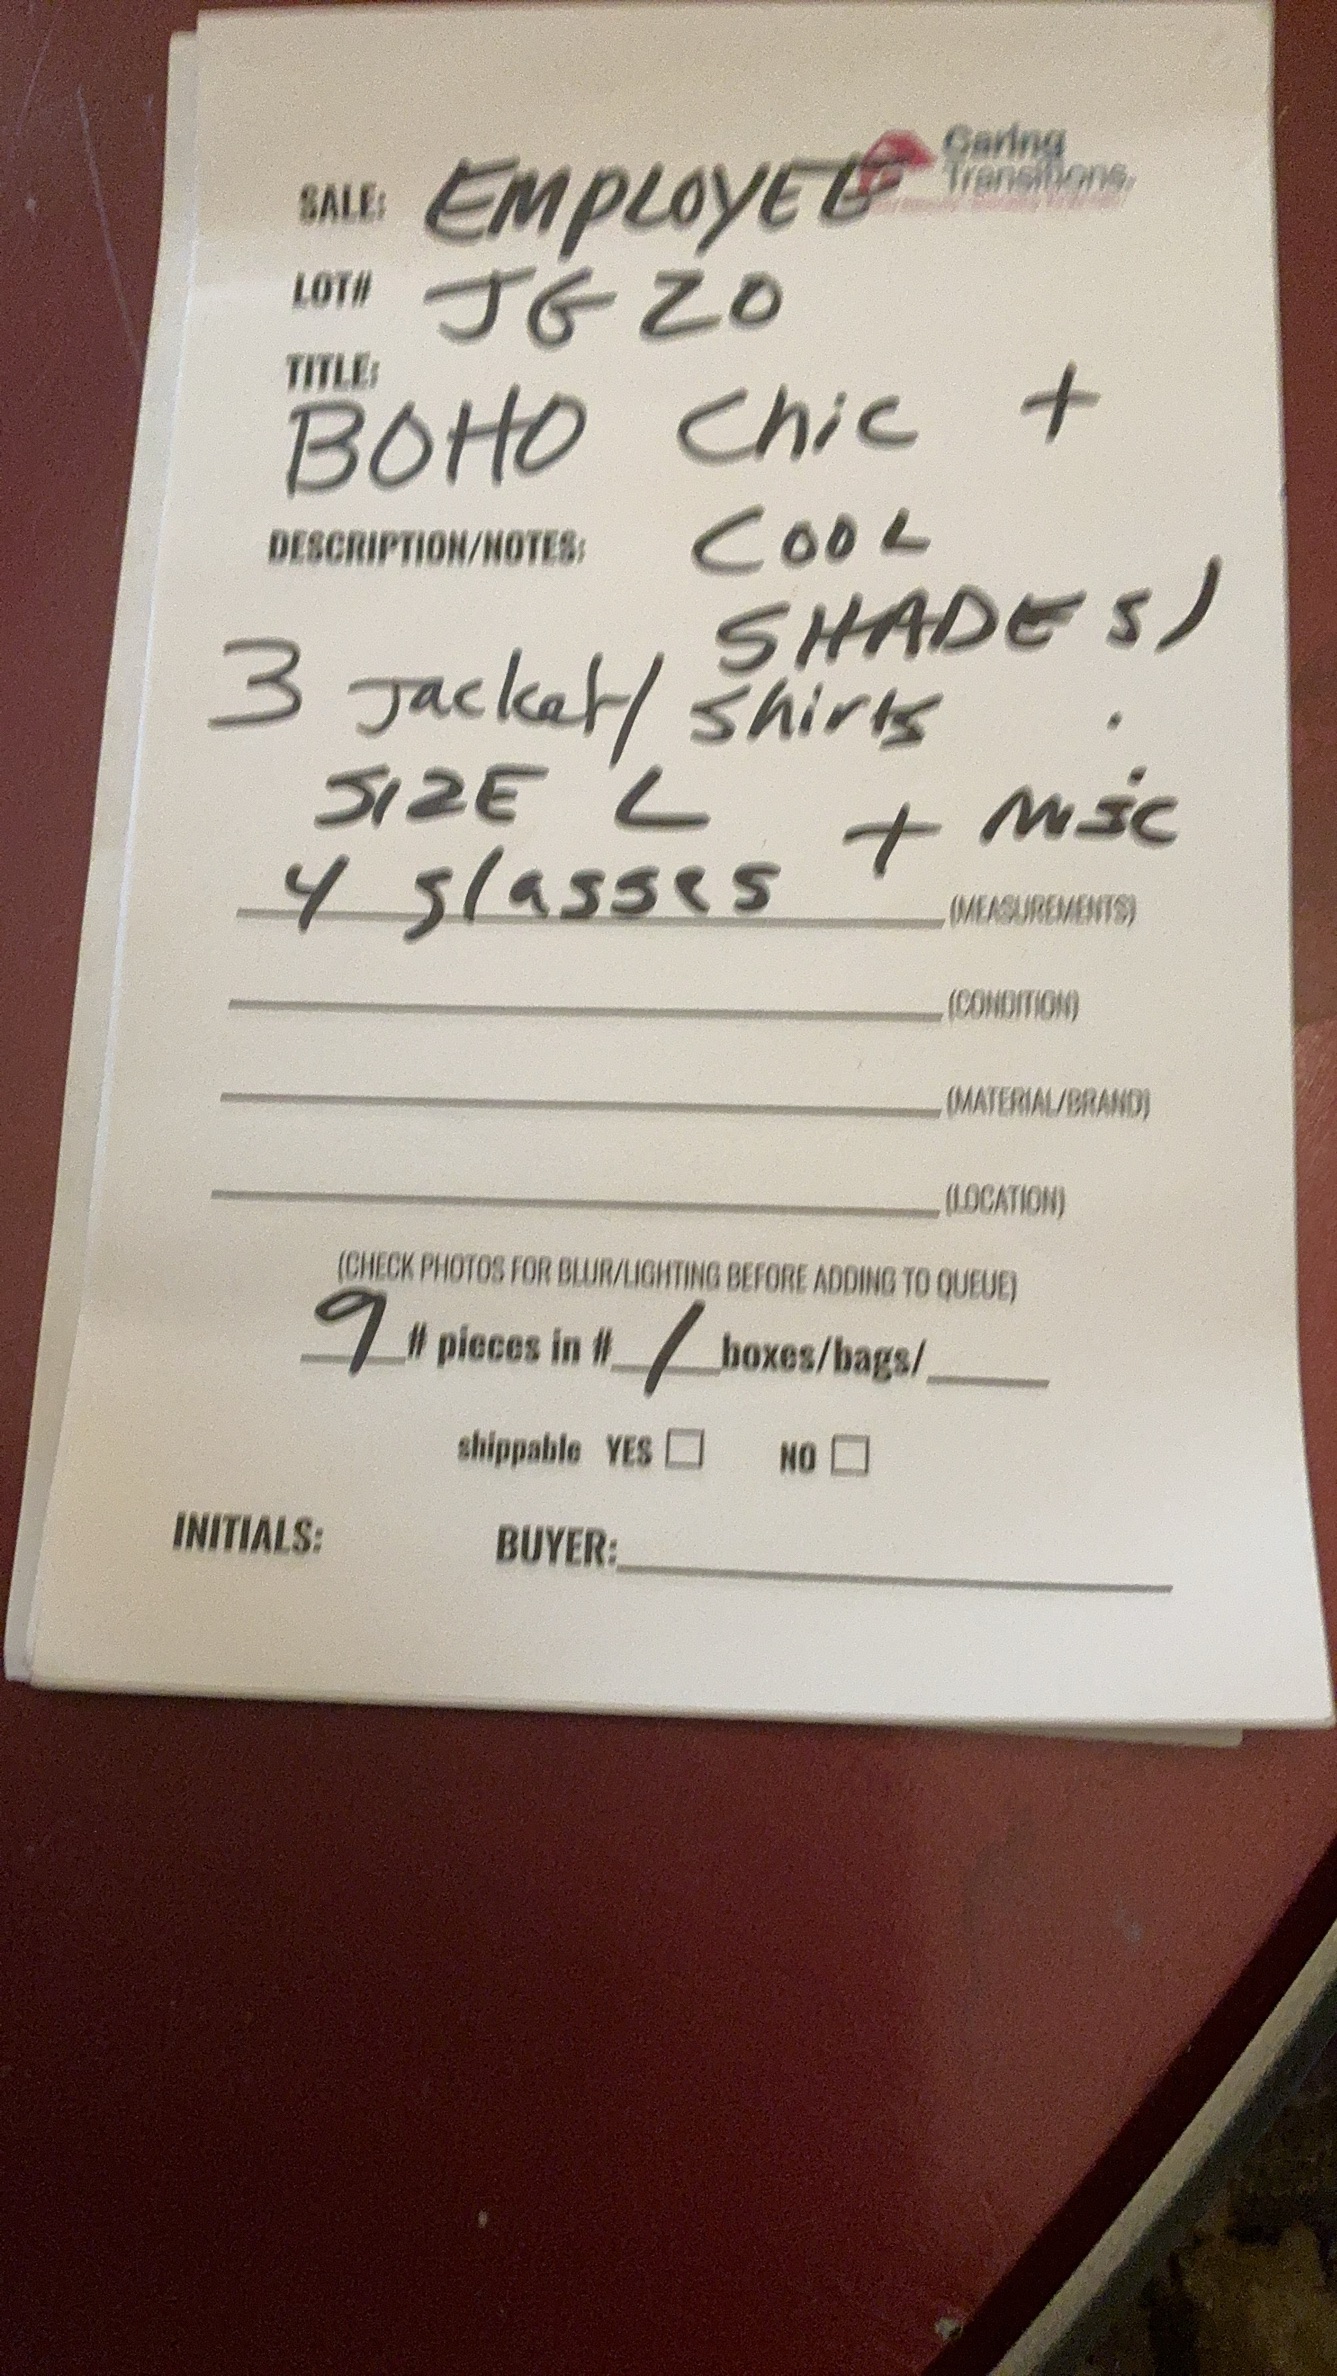 Caring
Transitions
SALE: EMPLOYEE
LOT# JG20
TITLE:
BOHO Chic +
COOL
SHADES)
DESCRIPTION/NOTES:
3 Jacket/ Shirts
SIZE L + Misc
4 glasses (MEASUREMENTS)
(CONDITION)
(MATERIAL/BRAND)
(LOCATION)
(CHECK PHOTOS FOR BLUR/LIGHTING BEFORE ADDING TO QUEUE)
9 # pieces in # 1 boxes/bags/
shippable YES NO
INITIALS: BUYER: